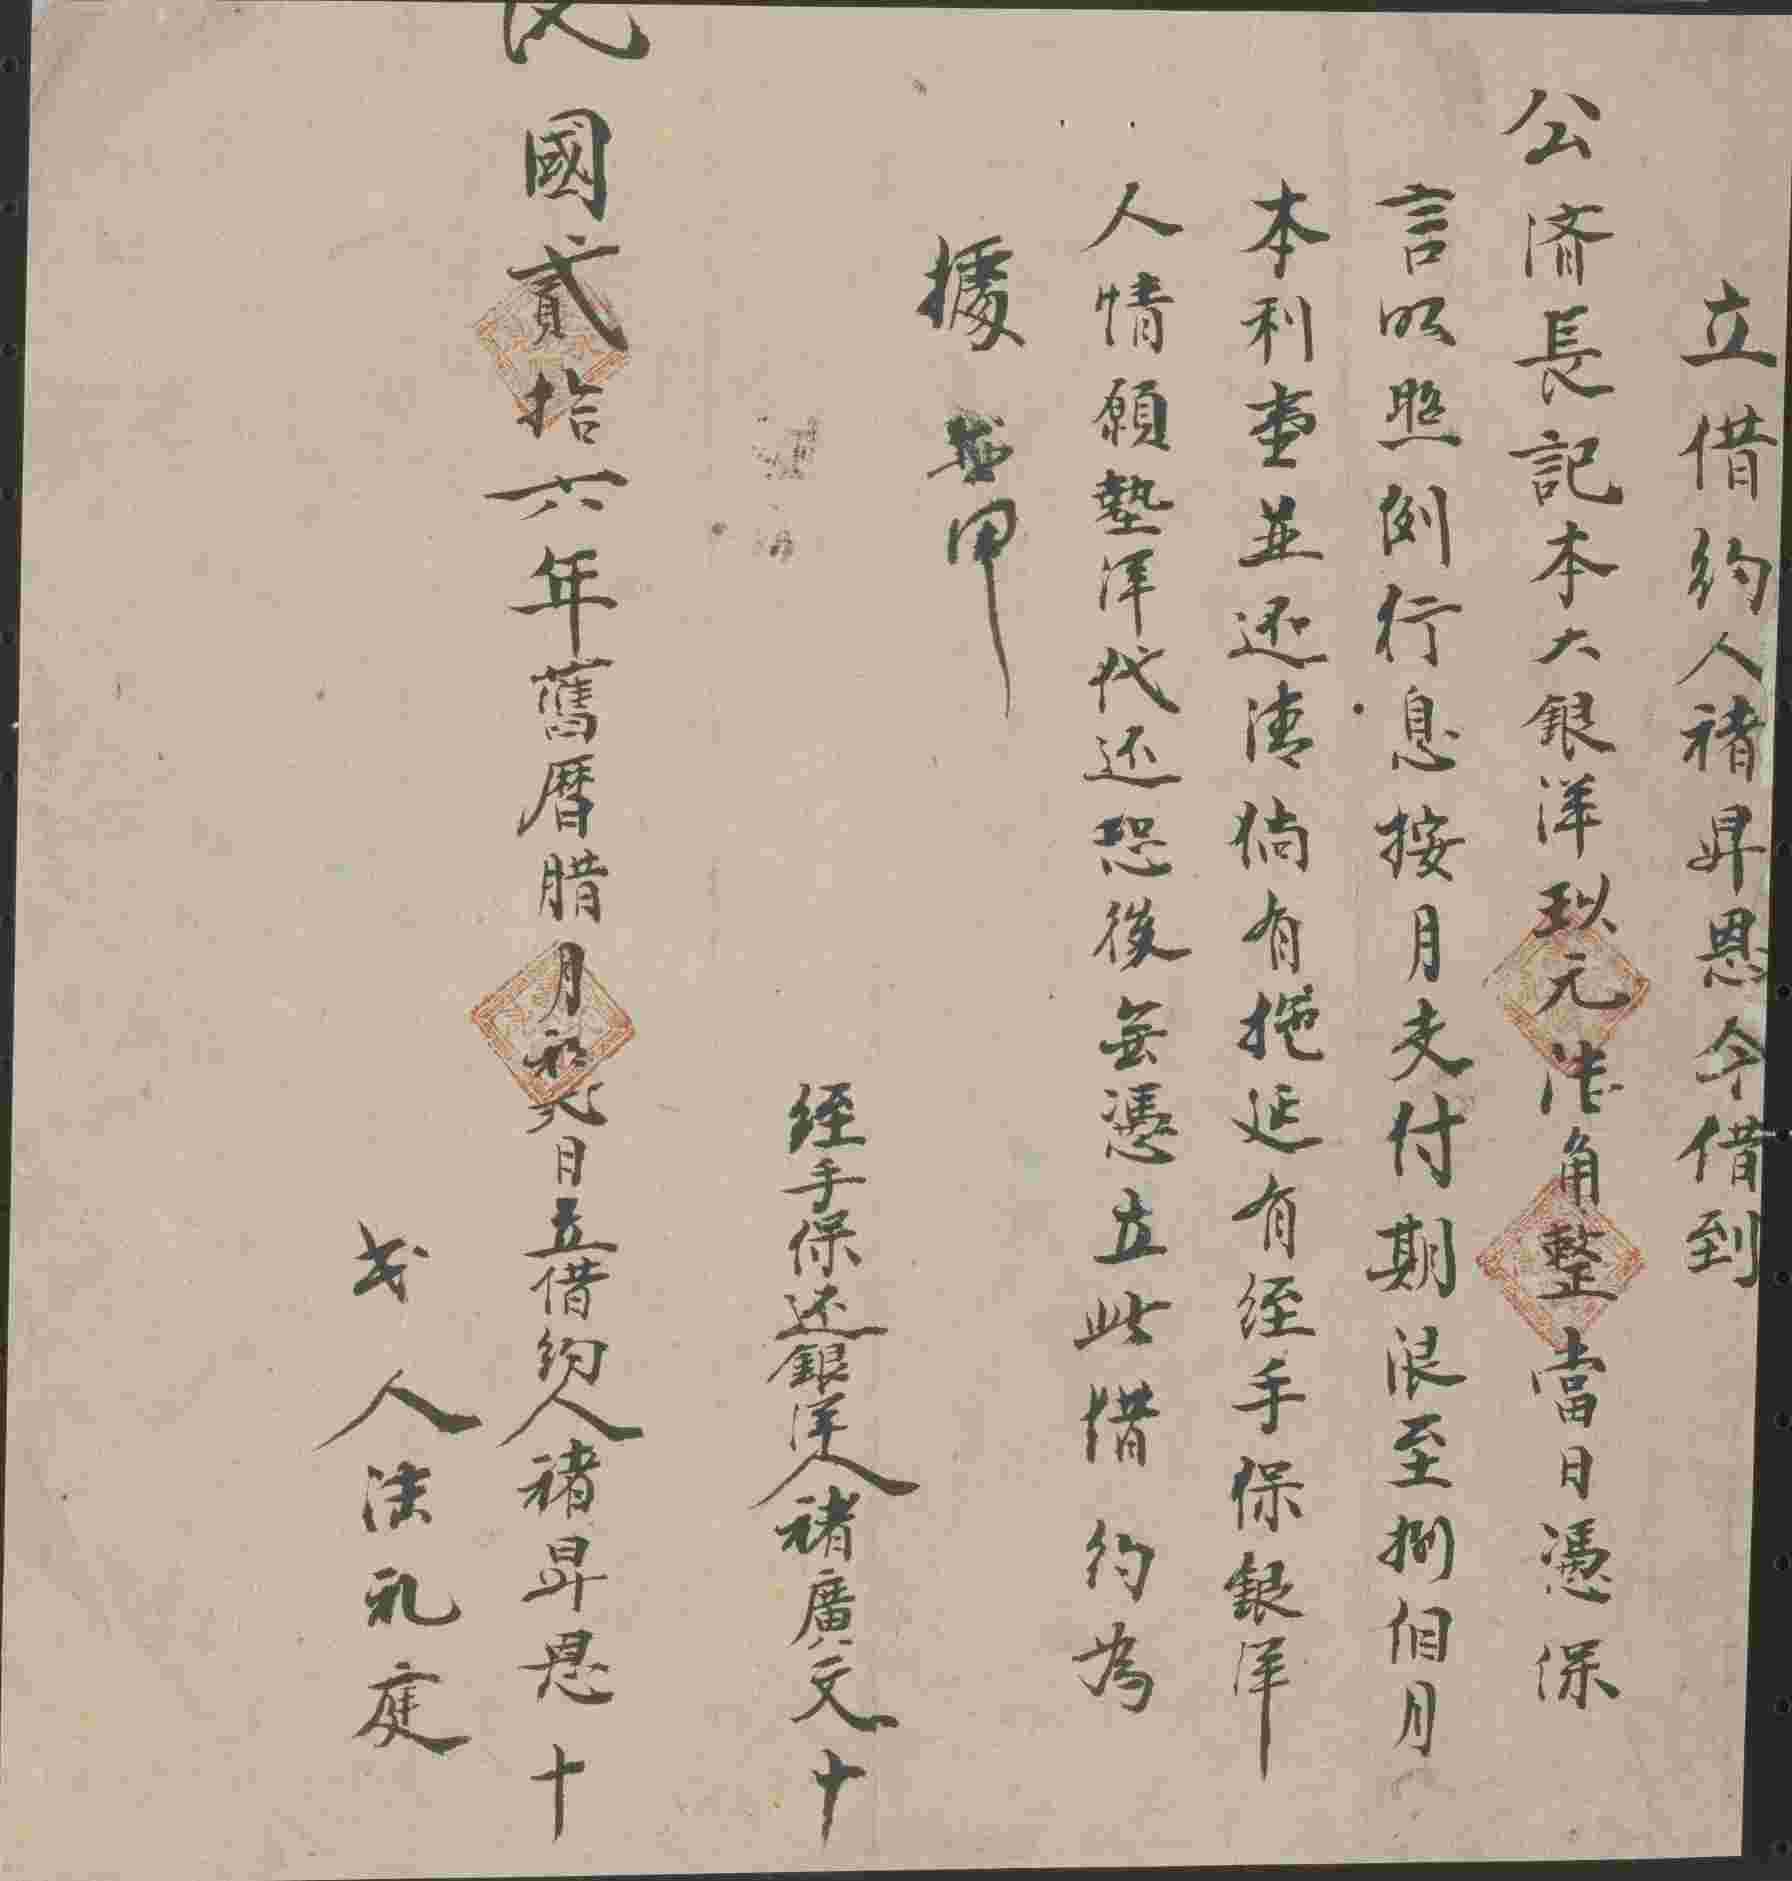 立借約人禇昇恩今借到
公済長記本大銀洋玖元陆角整當日憑保
言明照例行息按月支付期限至捌個月
本利壹並还清倘有拖延有经手保銀洋
人情願墊洋代还恐後無憑立此借約為
據
经手保还銀洋人禇廣文十
民國貳拾六年舊曆腊月初九日立借約人禇昇恩十
代人法礼庭